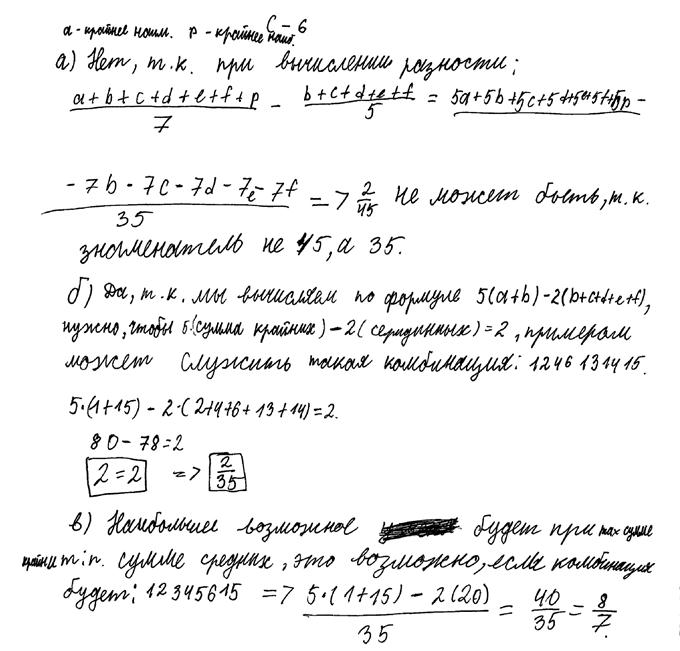 С – 6
a - крайнее наим. p - крайнее наиб.
а) Нет, т.к. при вычислении разности:
a+b+c+d+e+f+p / 7 – b+c+d+e+f / 5 = 5a+5b+5c+5d+5e+5f+5p –
–7b–7c–7d–7e–7f / 35 => 2/45 не может быть, т.к.
знаменатель не 45, а 35.
б) Да, т.к. мы вычисляем по формуле 5(a+b)–2(b+c+d+e+f),
нужно, чтобы 5·(сумма крайних)–2(серединных)=2, примером
может служить такая комбинация: 1 2 4 6 13 14 15.
5·(1+15) – 2·(2+4+6+13+14)=2.
80–78=2
2=2 => 2/35
в) Наибольшее возможное будет при max сумме
крайних min. сумме средних, это возможно, если комбинация
будет: 1 2 3 4 5 6 15 => 5·(1+15) – 2(20) / 35 = 40/35 = 8/7.